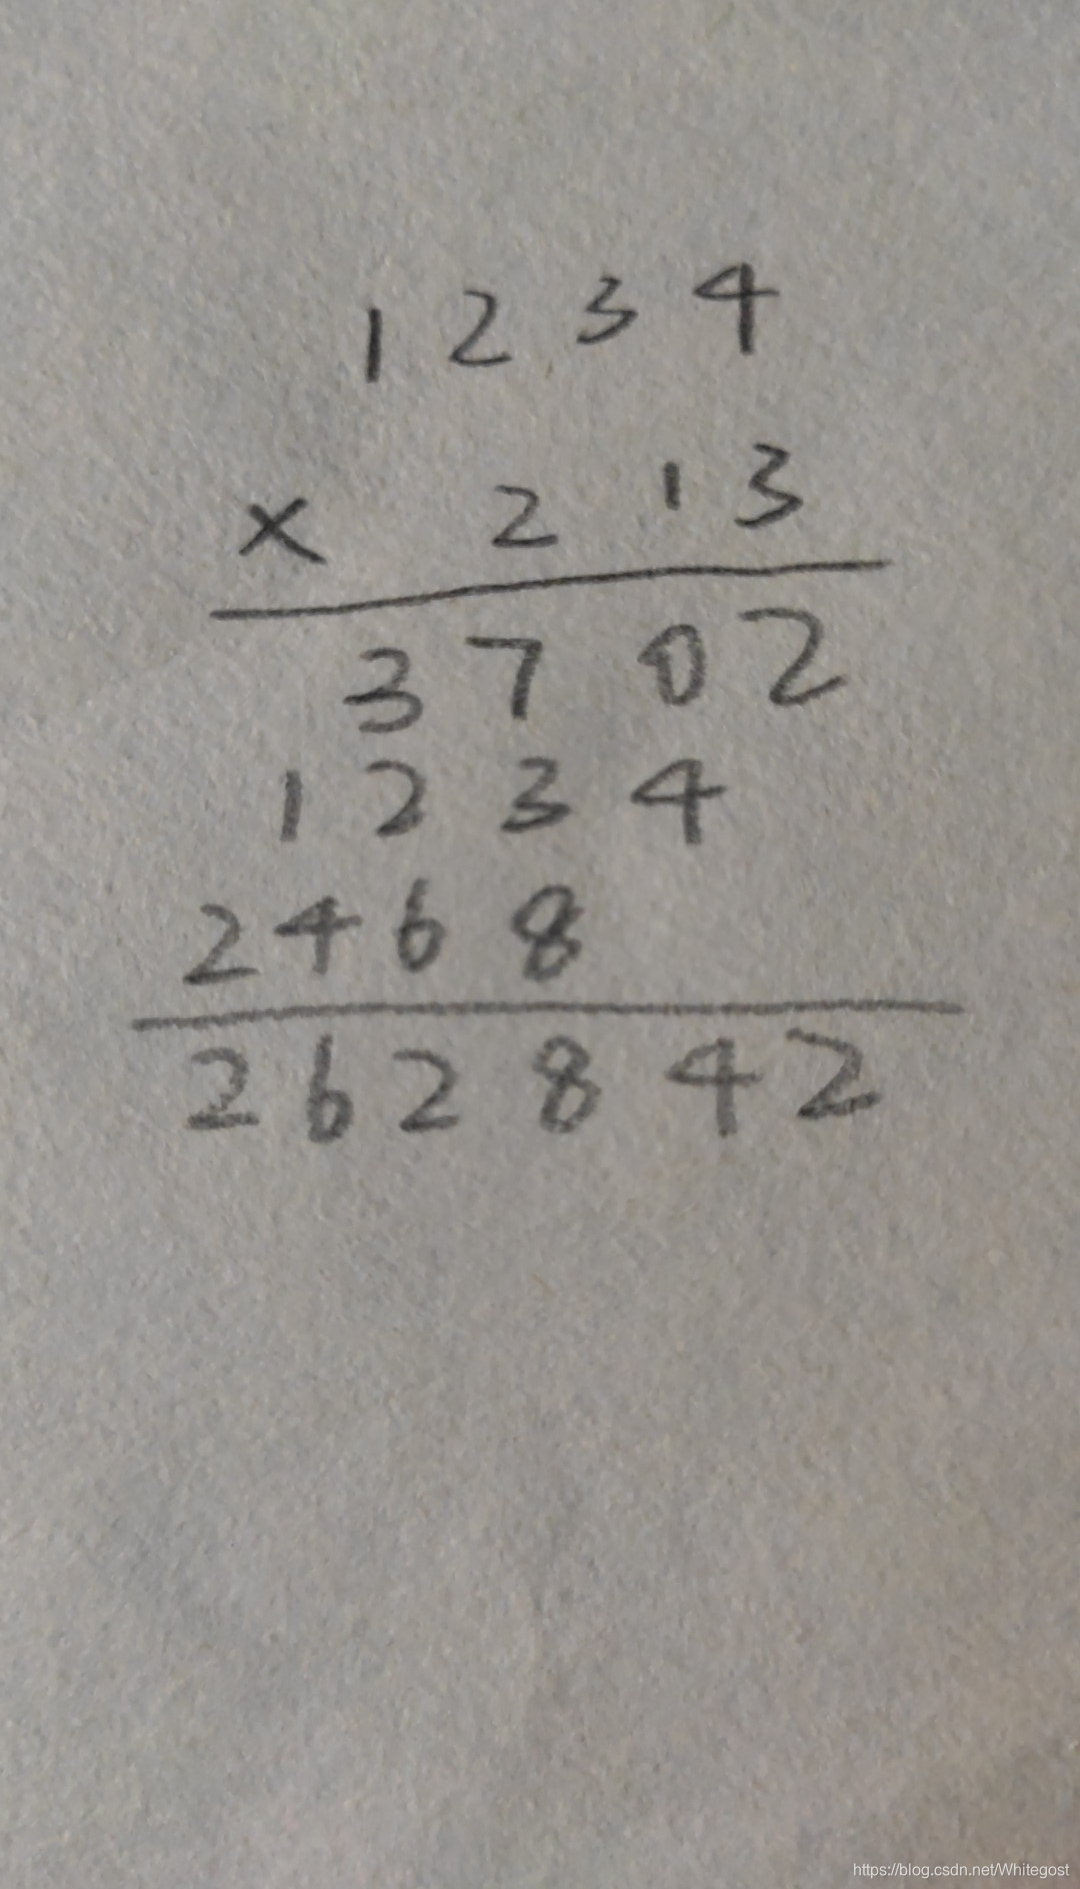 1234
× 213
3702
1234
2468
262842
https://blog.csdn.net/Whitegost